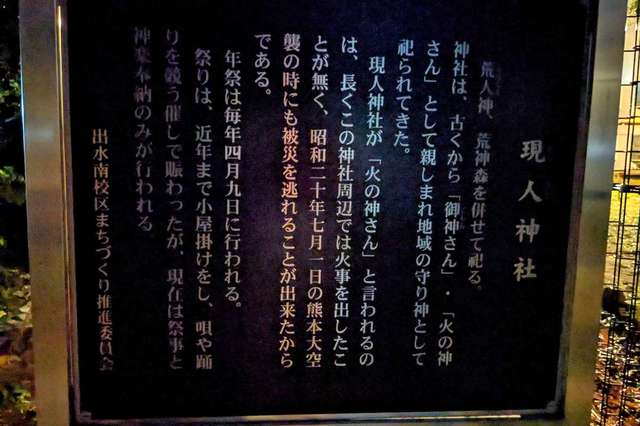 現人神社
荒人神、荒神森を併せて祀る。
神社は、古くから「御神さん」・「火の神
さん」として親しまれ地域の守り神として
祀られてきた。
現人神社が「火の神さん」と言われるの
は、長くこの神社周辺では火事を出したこ
とが無く、昭和二十年七月一日の熊本大空
襲の時にも被災を逃れることが出来たから
である。
年祭は毎年四月九日に行われる。
祭りは、近年まで小屋掛けをし、唄や踊
りを競う催しで賑わったが、現在は祭事と
神楽奉納のみが行われる。
出水南校区まちづくり推進委員会